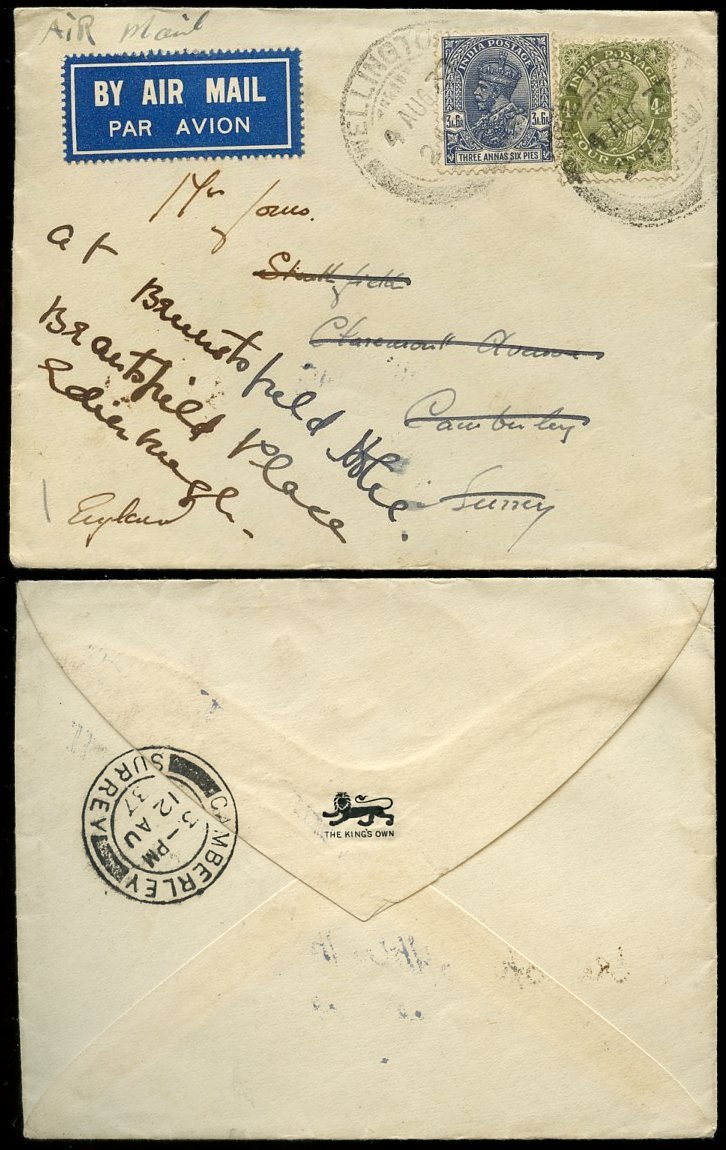 Air Mail
BY AIR MAIL
PAR AVION
WELLINGTON
4 AUG 37
INDIA POSTAGE
3A.6P. 3A.6P.
THREE ANNAS SIX PIES
INDIA POSTAGE
4As 4As
FOUR ANNAS
Mrs Jones.
Claremont Avenue
Camberley
Surrey
at Bruntsfield Hotel.
Bruntsfield Place
Edinburgh.
England
CAMBERLEY
SURREY
1 - PM
12 AU
37
THE KING'S OWN